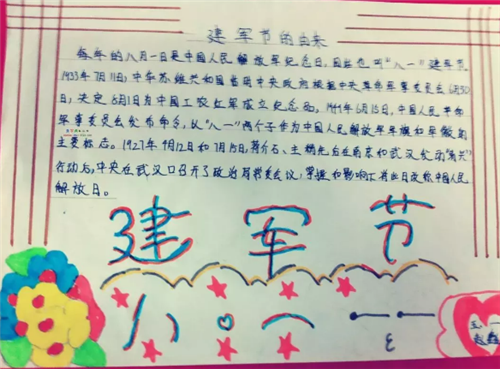 建军节的由来
每年的八月一日是中国人民解放军纪念日,因此也叫“八一”建军节
1933年7月11日,中华苏维共和国临时中央政府根据中央革命军事委员会6月30
日,决定8月1日为中国工农红军成立纪念日。1949年6月15日,中国人民革命
军事委员会发布命令,以“八一”两个子作为中国人民解放军军旗和军徽的
主要标志。1927年4月12日和7月15日,蒋介石、
行动后,中央在武汉口召开了政治局常委会议,掌握和影响
解放日。
建军节
八 一